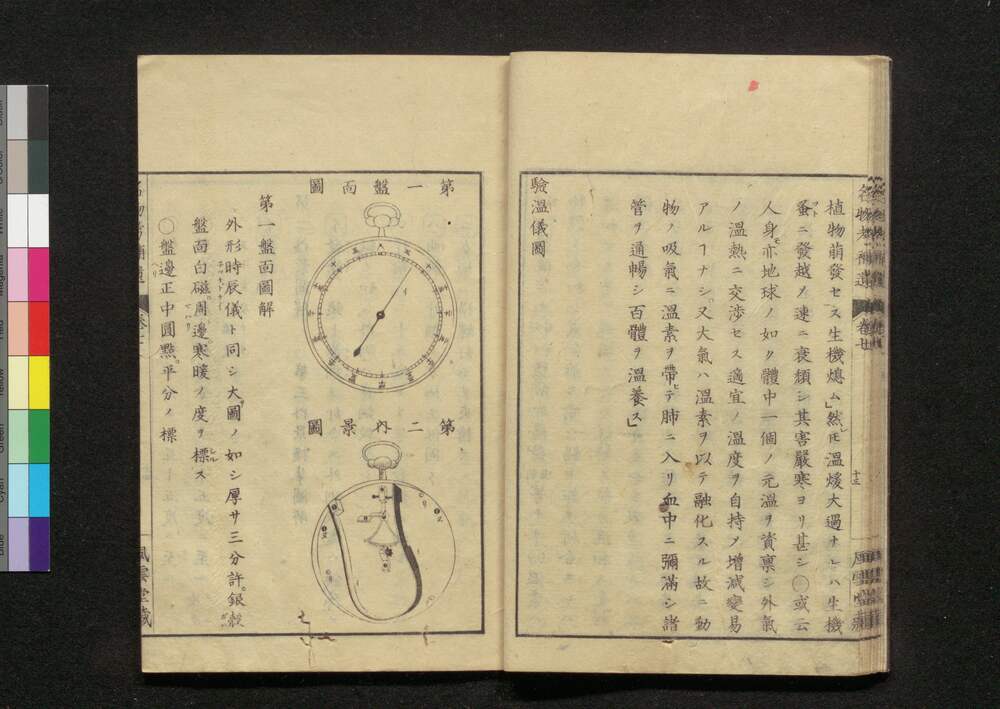 植物萠發セス生機熄ム」然レ𪜈溫煖大過ナレハ生機
蚤ニ發越メ速ニ衰頽シ其害嚴寒ヨリ甚シ○或云
人身亦地球ノ如ク體中一個ノ元溫ヲ資稟シ外氣
ノ溫熱ニ交渉セス適宜ノ溫度ヲ自持メ增減變易
アルヿナシ又大氣ハ溫素ヲ以テ融化スル故ニ動
物ノ吸氣ニ溫素ヲ帶テ肺ニ入リ血中ニ彌滿シ諸
管ヲ通暢シ百體ヲ溫養ス」
驗溫儀圖
第一盤面圖
第二內景圖
第一盤面圖解
外形時辰儀ト同シ大圖ノ如シ厚サ三分許銀殼
盤面白磁周邊寒暖ノ度ヲ標ス
○盤邊正中圓點平分ノ標
風雲堂藏